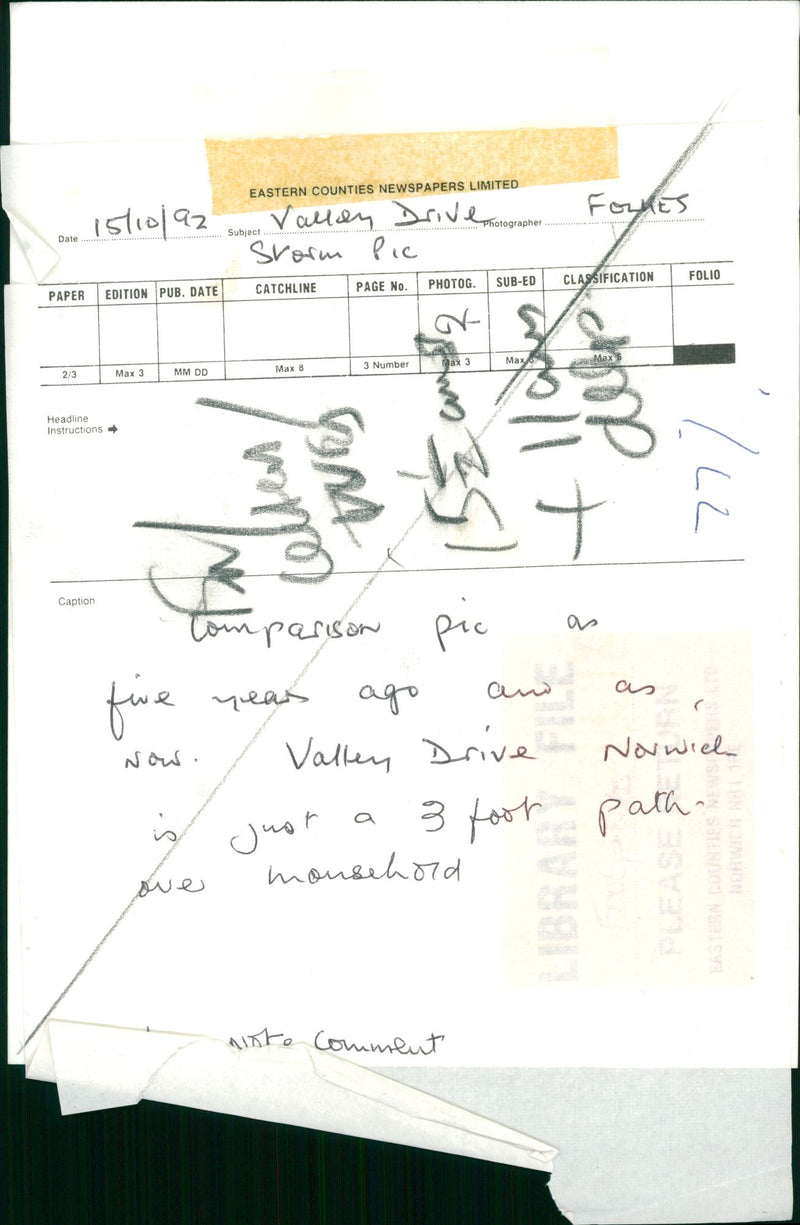 EASTERN COUNTIES NEWSPAPERS LIMITED
Date 15/10/92 Subject Valley Drive Photographer FOLKES
Storm Pic
PAPER EDITION PUB. DATE CATCHLINE PAGE No. PHOTOG. SUB-ED CLASSIFICATION FOLIO
2
2/3 Max 3 MM DD Max 8 3 Number Max 3 Max Max 6
Headline
Instructions
15½ cms
+ 11cm
deep
77%
Caption
Comparison pic as
five years ago and as
now. Valley Drive Norwich
is just a 3 foot path
over mousehold
note comment
LIBRARY FILE
PLEASE RETURN
EASTERN COUNTIES NEWSPAPERS LTD
NORWICH NR1 1RE